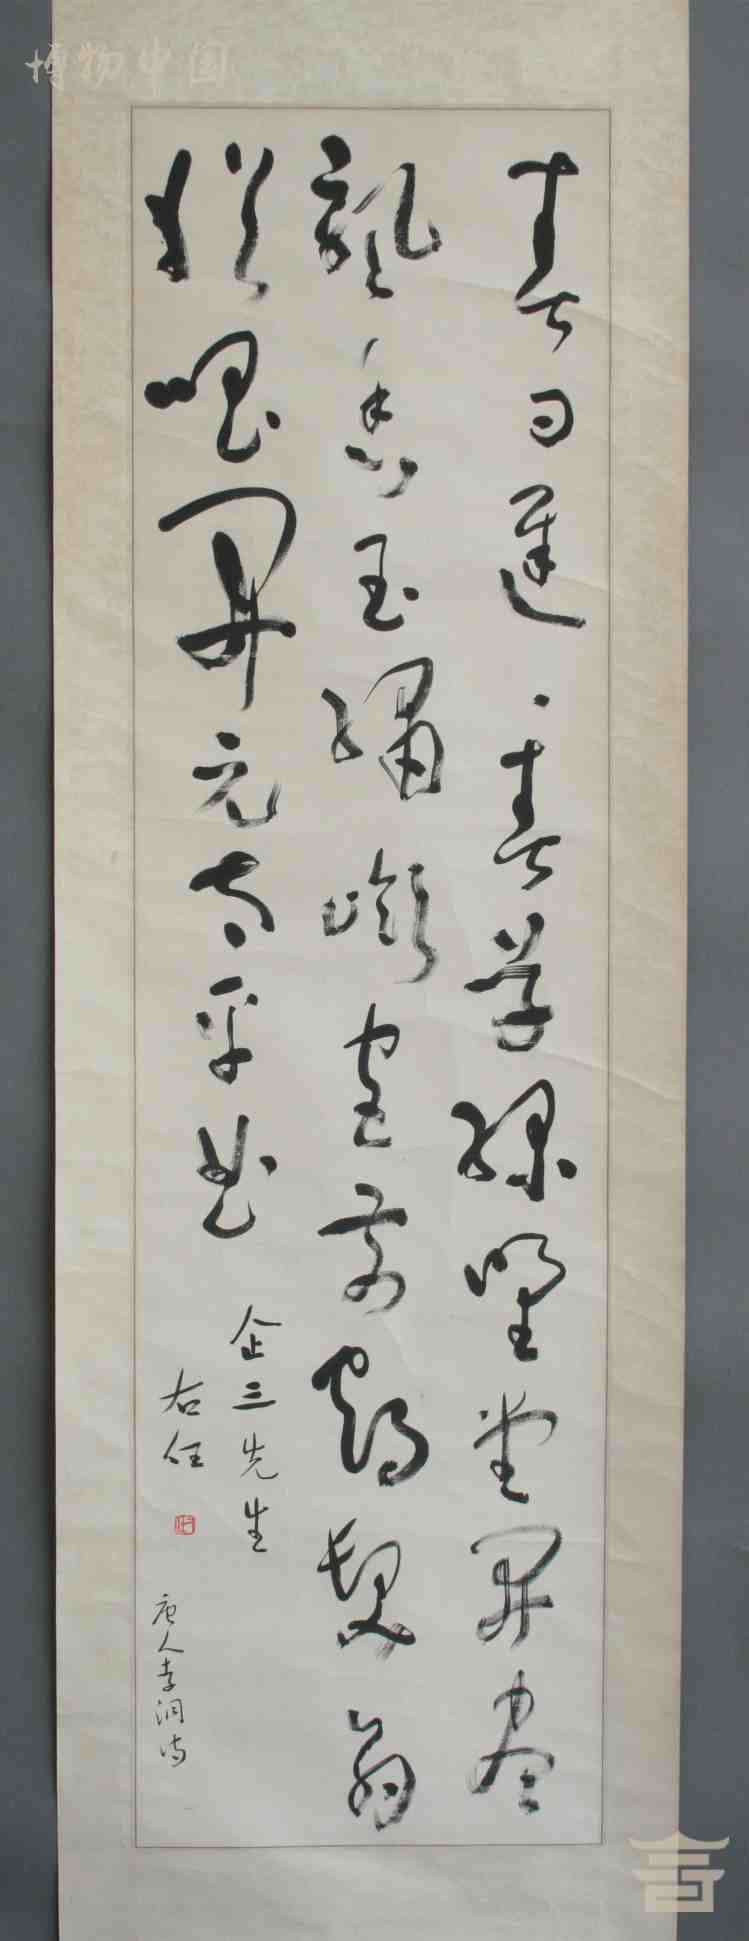 博物中国
春日遲々春草綠野棠開盡
飄香玉繡嶺宮前鶴髮翁
猶唱開元太平曲
企三先生
右任
唐人李洞詩